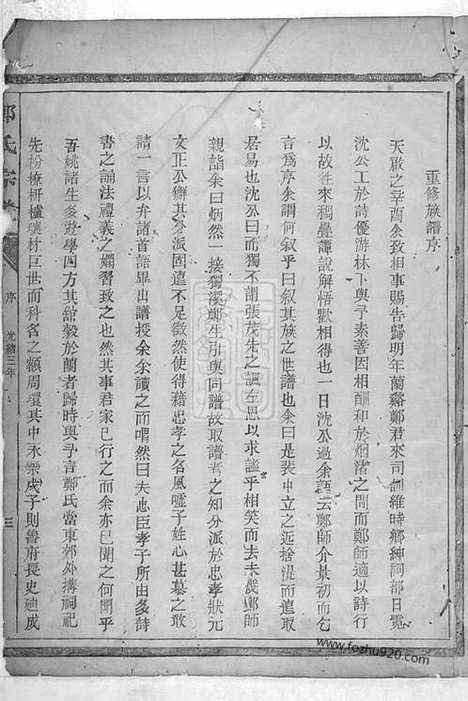 重修族譜序
天啟之辛酉余致相事賜告歸明年蘭谿鄭君來司訓維時鄉紳阿部日霓
沈公工於詩優游林下與予素善因相酬和於烟渚之間而鄭師適以詩行
以故往來稠疊譚說解悟歡相得也一日沈公過余語云鄭師介景初而乞
言為序余謂何叙乎曰叙其族之世譜也余曰是裴中立之近捨湜而遠取
居易也沈公曰不謂張茂朱之讓左思以求謐乎相笑而去未幾鄭師
親詣余曰炳然一接獨溪鄭生引與同譜故取譜者之知分派於忠孝狀元
文正公獬其分派固遠不足徵然使得藉忠孝之名風噓子姓心甚墓之敢
請一言以弁諸首語畢出譜授余余讀之而喟然曰夫忠臣孝子所由多詩
書之誦法禮義之嫻習致之也然其事君家已行之而余亦已聞之何閒乎
吾姚諸生多遊學四方其綰穀於蘭者歸時與予言鄭氏當東郊外搆祠祀
先枌橑枅櫨瓌材巨世而科名之額周環其中永樂戊子則魯府長史廸成
鄭氏宗譜
序
光緒三年
三
www.fozhu920.com